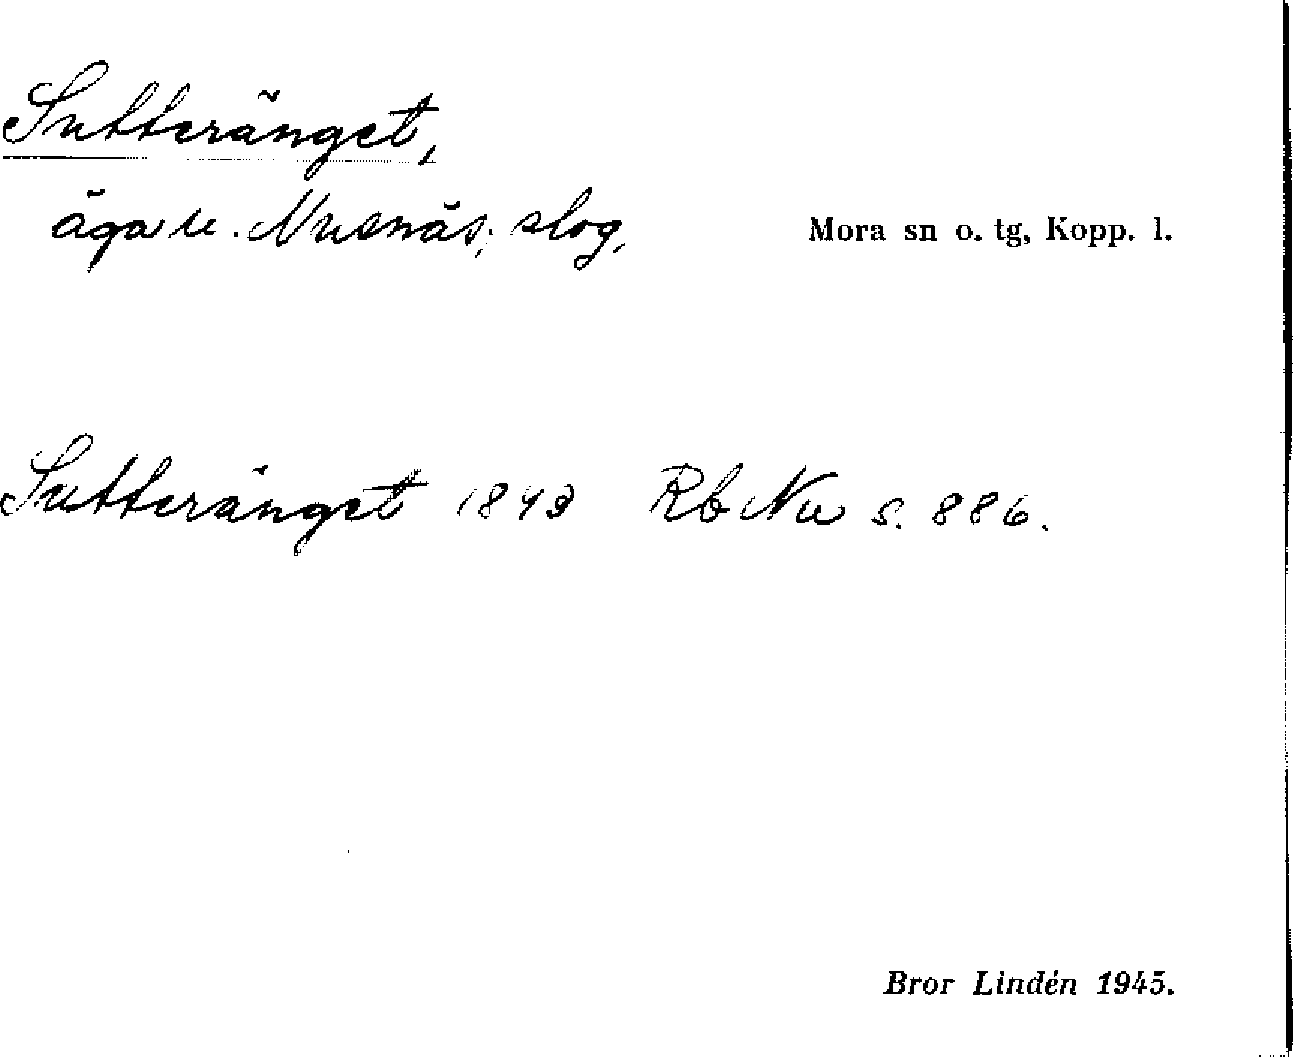 Sutteränget,
äga u. Nusnäs; slog,
Mora sn o. tg, Kopp. l.
Sutteränget 1843 Rb Nu s. 886.
Bror Lindén 1945.